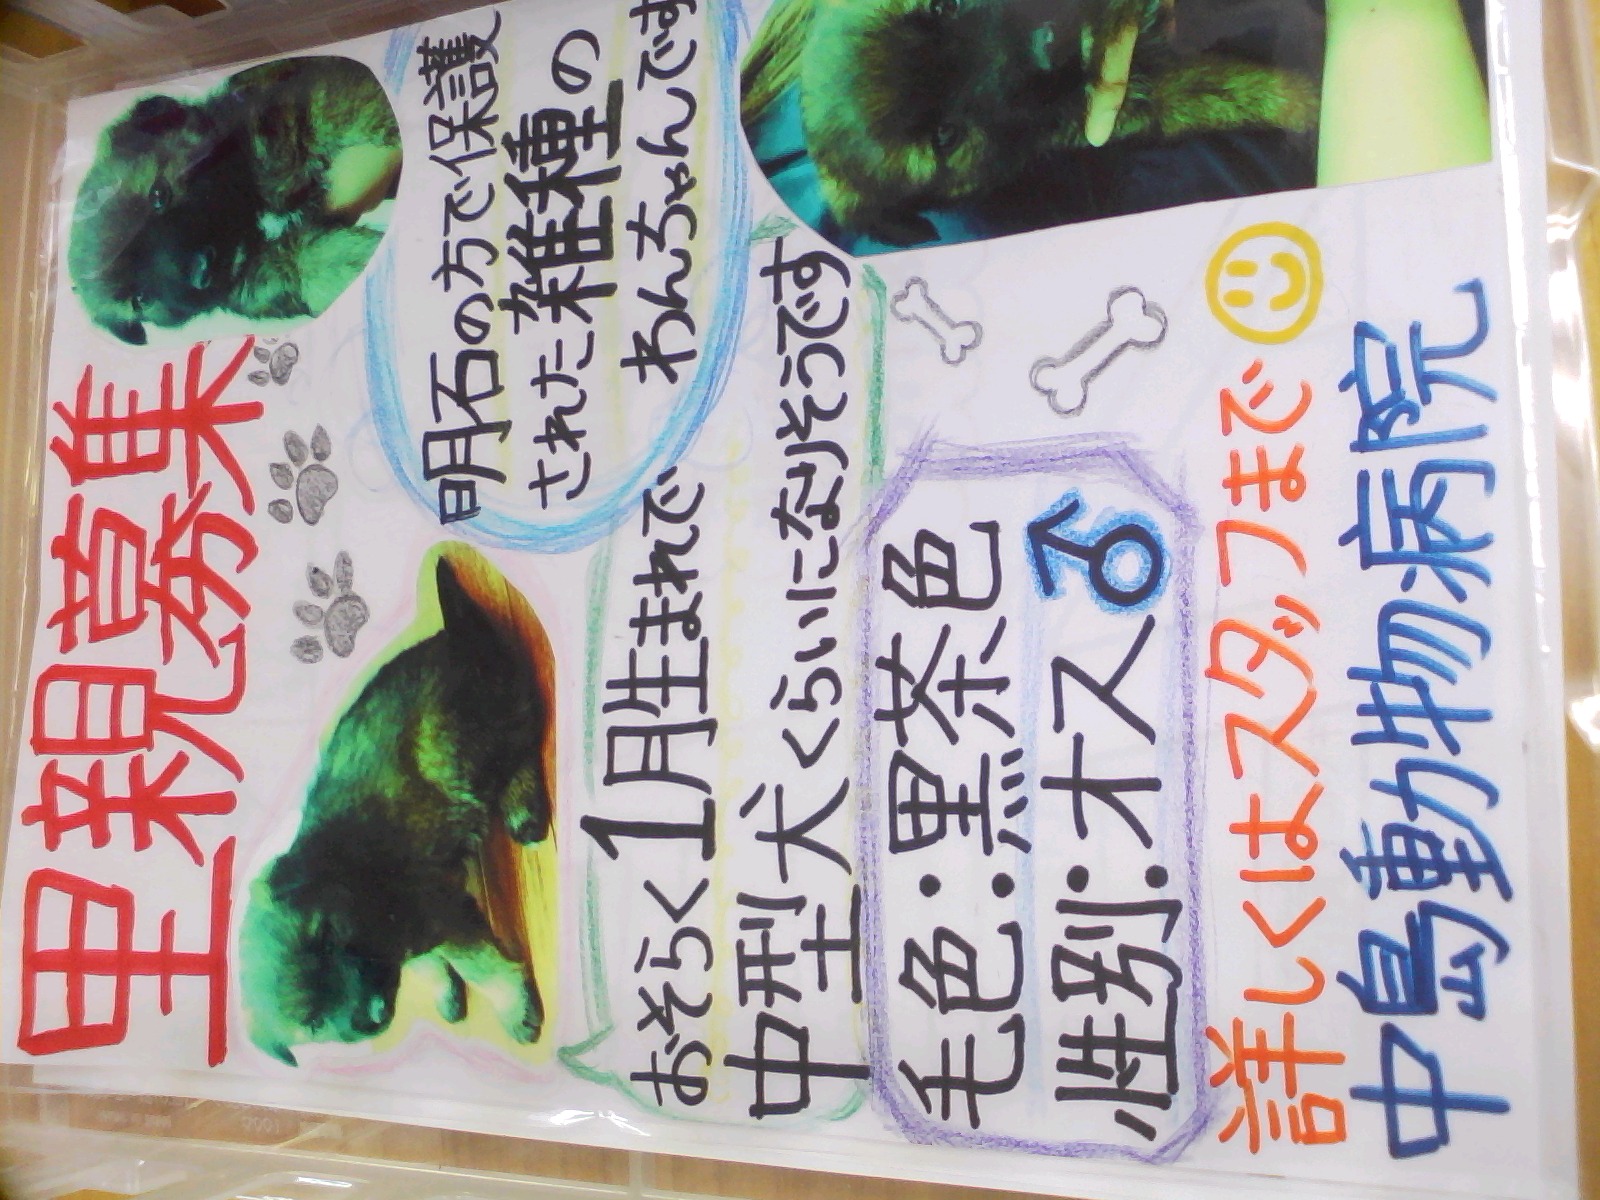 里親募集
明石の方で保護
された雑種の
わんちゃんです
おそらく1月生まれで
中型犬くらいになりそうです
毛色:黒茶色
性別:オス♂
詳しくはスタッフまで
中島動物病院